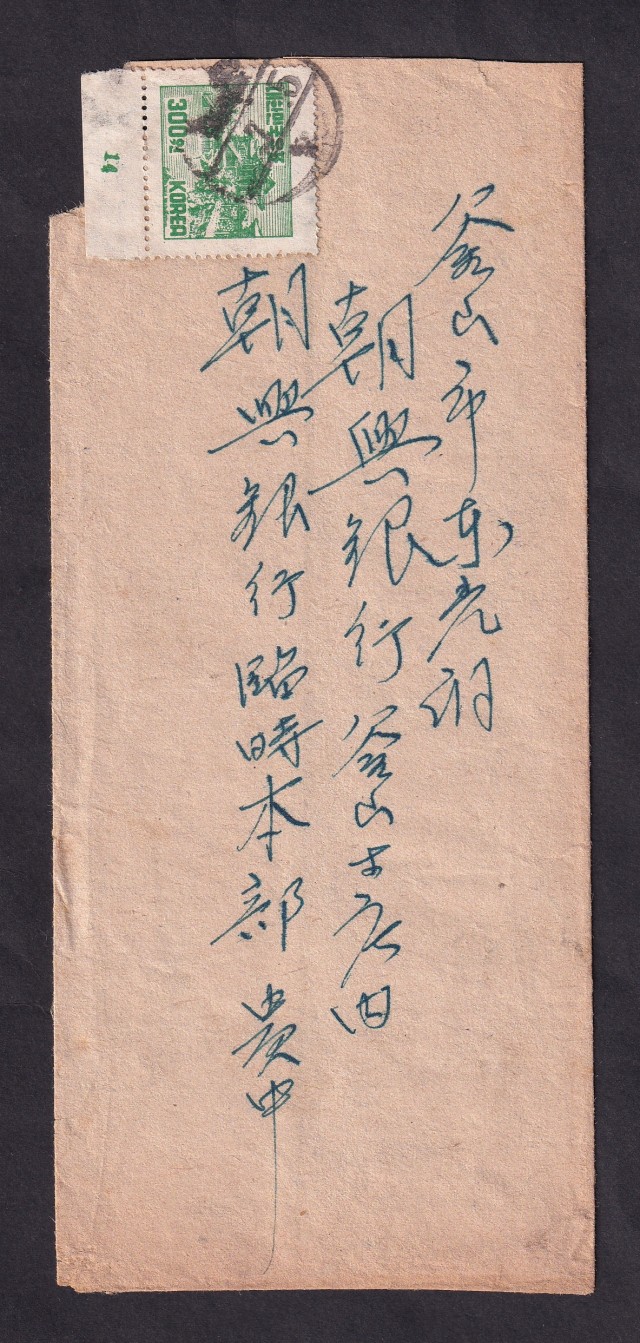 釜山市東光洞
朝興銀行釜山支店内
朝興銀行臨時本部 貴中
대한민국우표
300원
KOREA
14